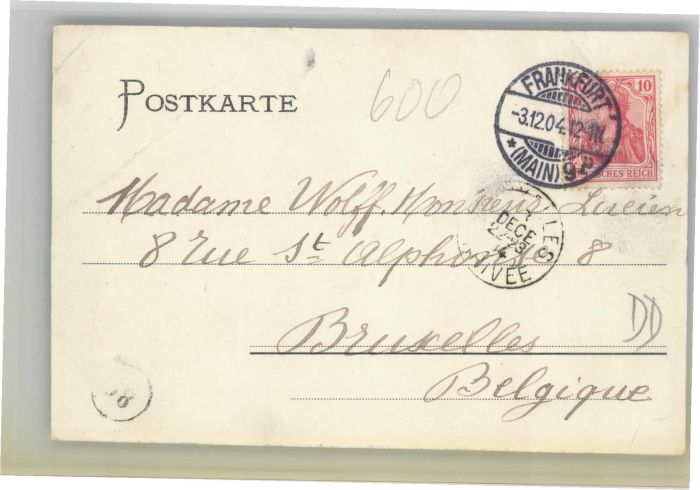 POSTKARTE
600
FRANKFURT
-3.12.04.12-1N.
*(MAIN)9
10
CHES REICH
Madame Wolff. Monsieur Lucien
8 rue St Alphonse 8
LLES
DECE
IVEE
Bruxelles
DD
Belgique